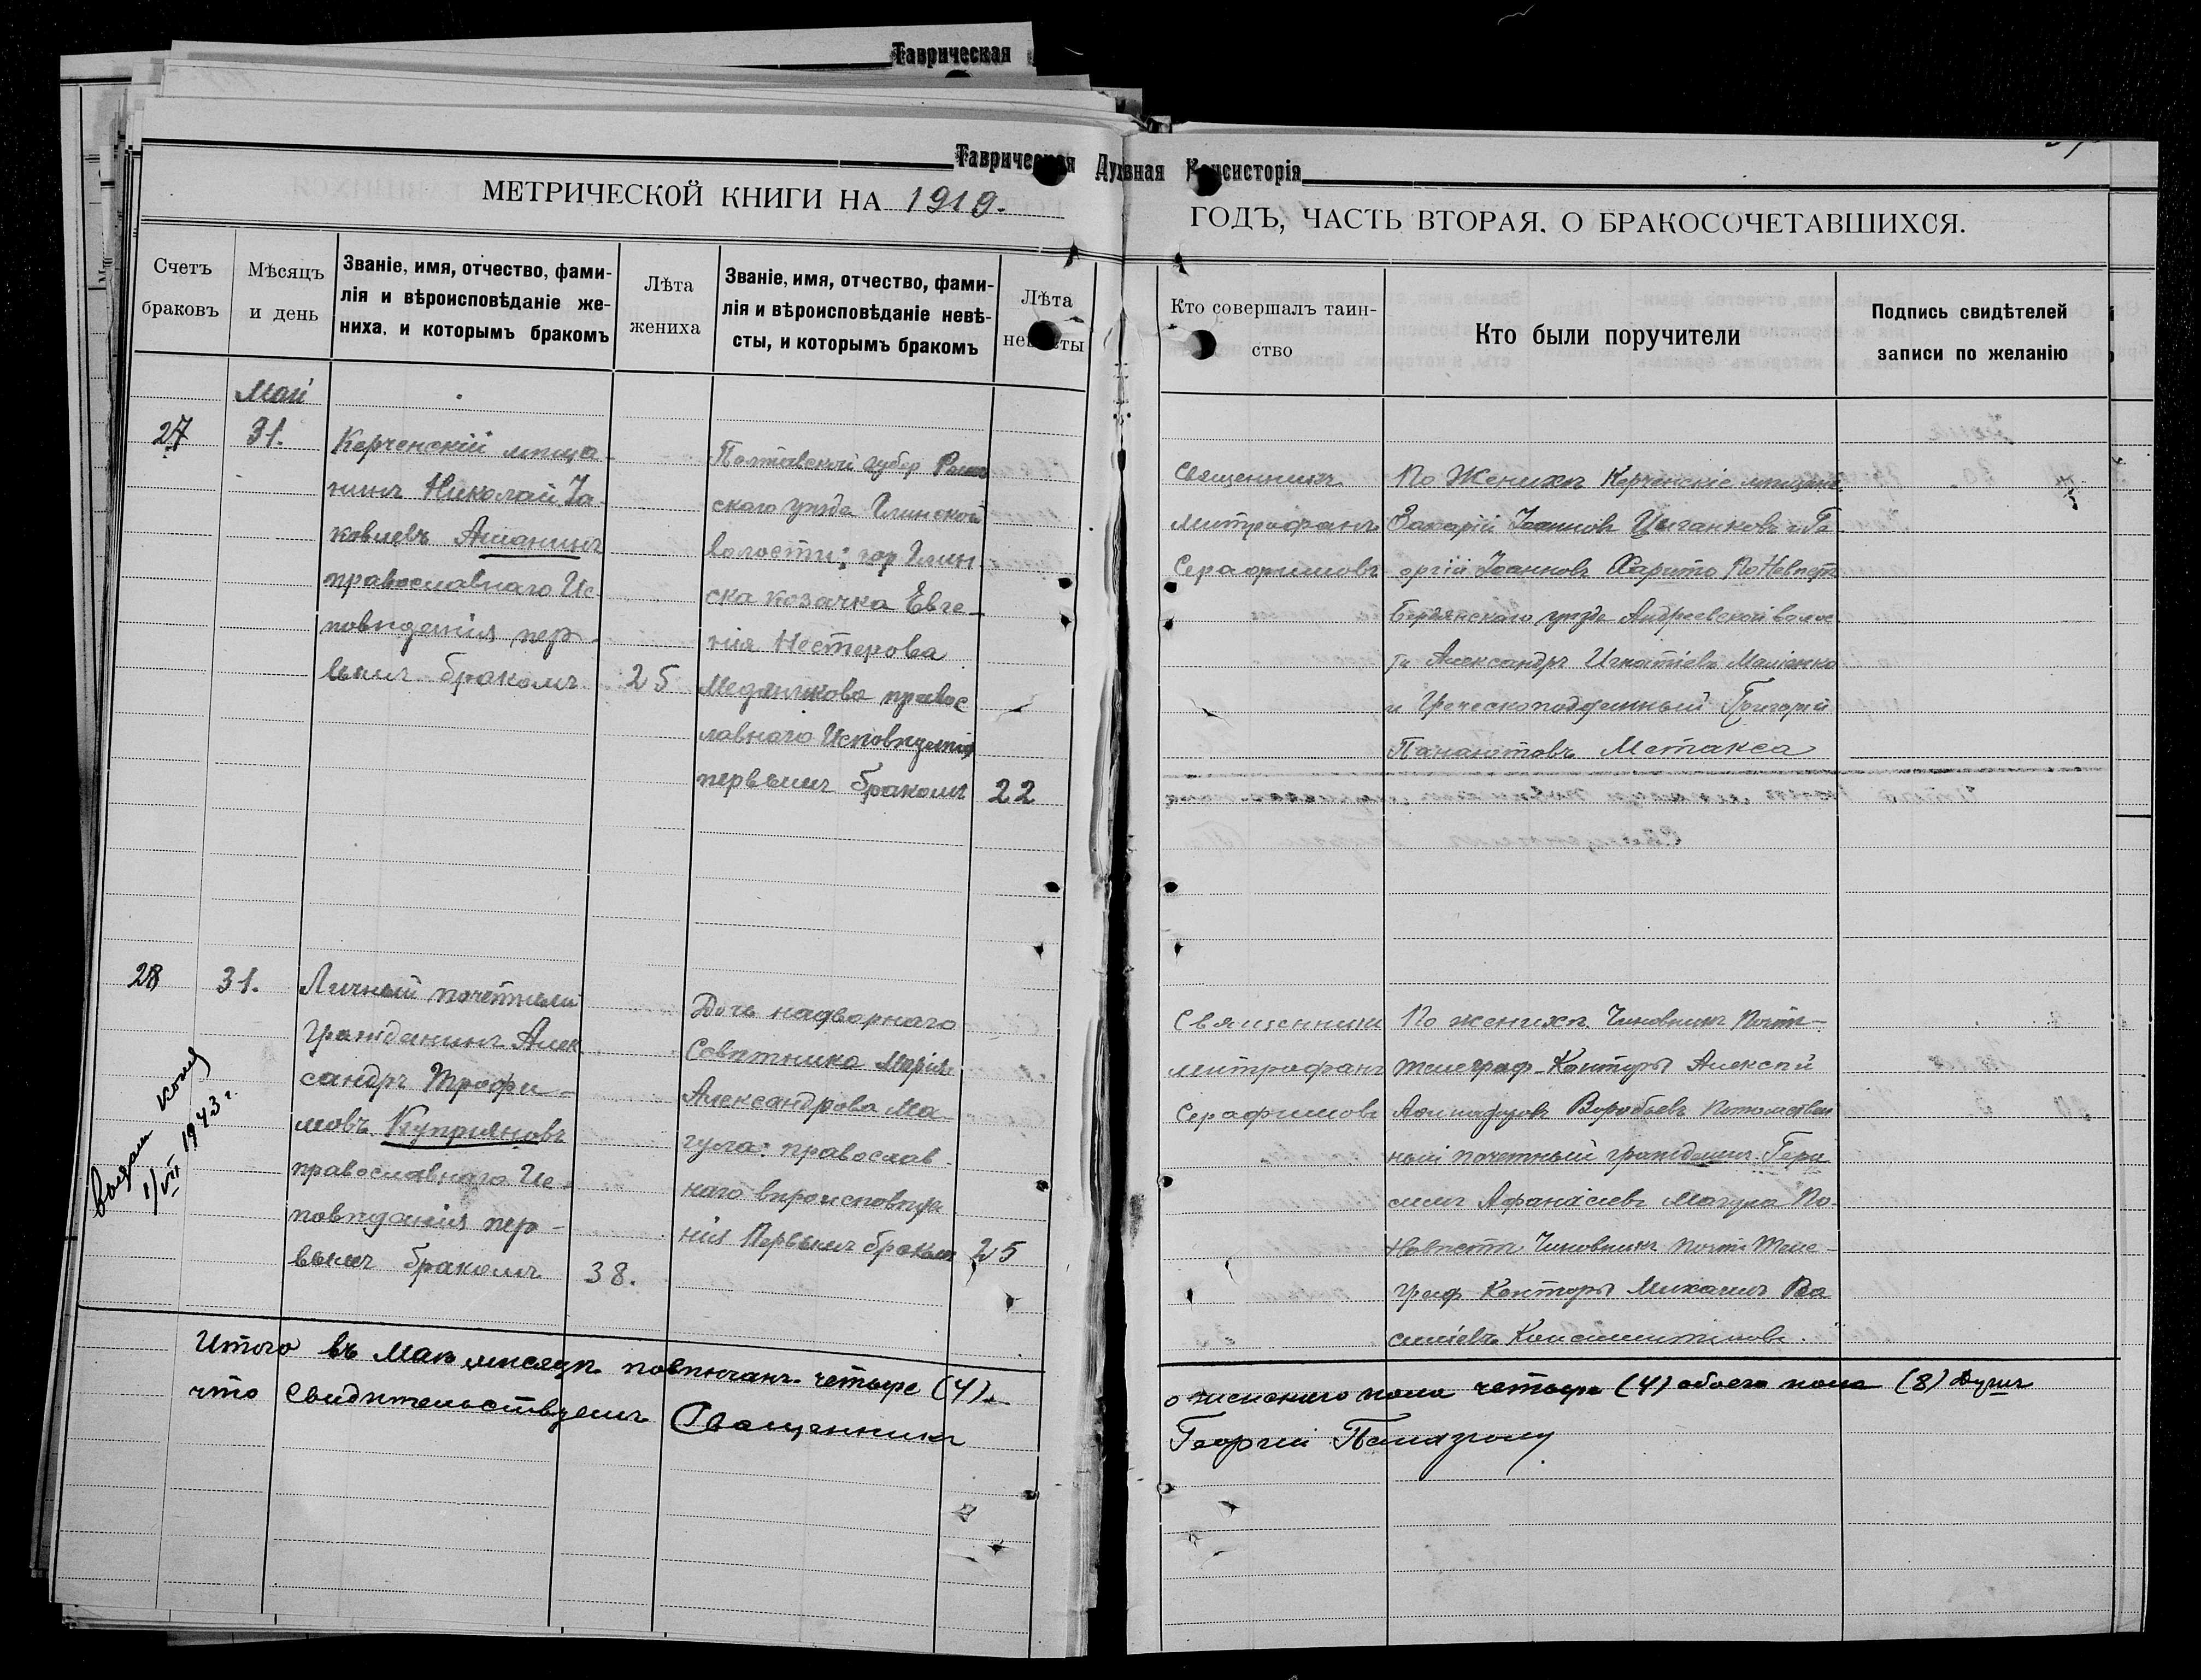 Таврическая
Таврическая Духовная Консисторія
МЕТРИЧЕСКОЙ КНИГИ НА 1919.
ГОДЪ, ЧАСТЬ ВТОРАЯ, О БРАКОСОЧЕТАВШИХСЯ.
Счетъ
браковъ
Мѣсяцъ
и день
Званіе, имя, отчество, фами-
лія и вѣроисповѣданіе же-
ниха, и которымъ бракомъ
Лѣта
жениха
Званіе, имя, отчество, фами-
лія и вѣроисповѣданіе невѣ-
сты, и которымъ бракомъ
Лѣта
невѣсты
Кто совершалъ таин-
ство
Кто были поручители
Подпись свидѣтелей
записи по желанію
Май
27
31.
Керченскій мѣща-
нинъ Николай Іа-
ковлевъ Ашанинъ
православнаго Ис
повѣданія пер-
вымъ бракомъ
25
Полтавской губер Ромен
скаго уѣзда Глинской
волости: гор Глин-
ска козачка Евге-
нія Нестерова
Медяникова правос
лавнаго Исповѣданія
первымъ бракомъ
22
Священникъ
Митрофанъ
Серафимовъ
По Женихѣ Керченскіе мѣщане
Захарій Іоанновъ Цыганковъ и Ге
оргій Іоанновъ Харито По Невѣстѣ
Бердянскаго уѣзда Андреевской волос
ти Александръ Игнатіевъ
и Греческоподданный Григорій
Панаютовъ Метакса
28
31.
Личный почетный
Гражданинъ Алек
сандръ Трофи-
мовъ Куприяновъ
православнаго Ис-
повѣданія пер-
вымъ бракомъ
38.
Дочь надворнаго
Совѣтника Марія
Александрова Ма
гула: православ-
наго вѣроисповѣда
нія Первымъ бракомъ
25
Священникъ
Митрофанъ
Серафимовъ
По женихѣ Чиновникъ Почт-
телеграф-Конторы Алексѣй
Воробьевъ Потомствен
ный почетный гражданинъ Гера
симъ Афанасіевъ Магула По
Невѣстѣ Чиновникъ Почт Теле-
граф Конторы Михаилъ Ва
силіевъ Константиновъ.
Выдан
1/VII 1943 г.
Итого въ Маѣ мѣсяцѣ повѣнчано четыре (4)
женскаго пола четыре (4) обоего пола (8) Душъ
что Свидѣтельствуемъ Священникъ
Георгій